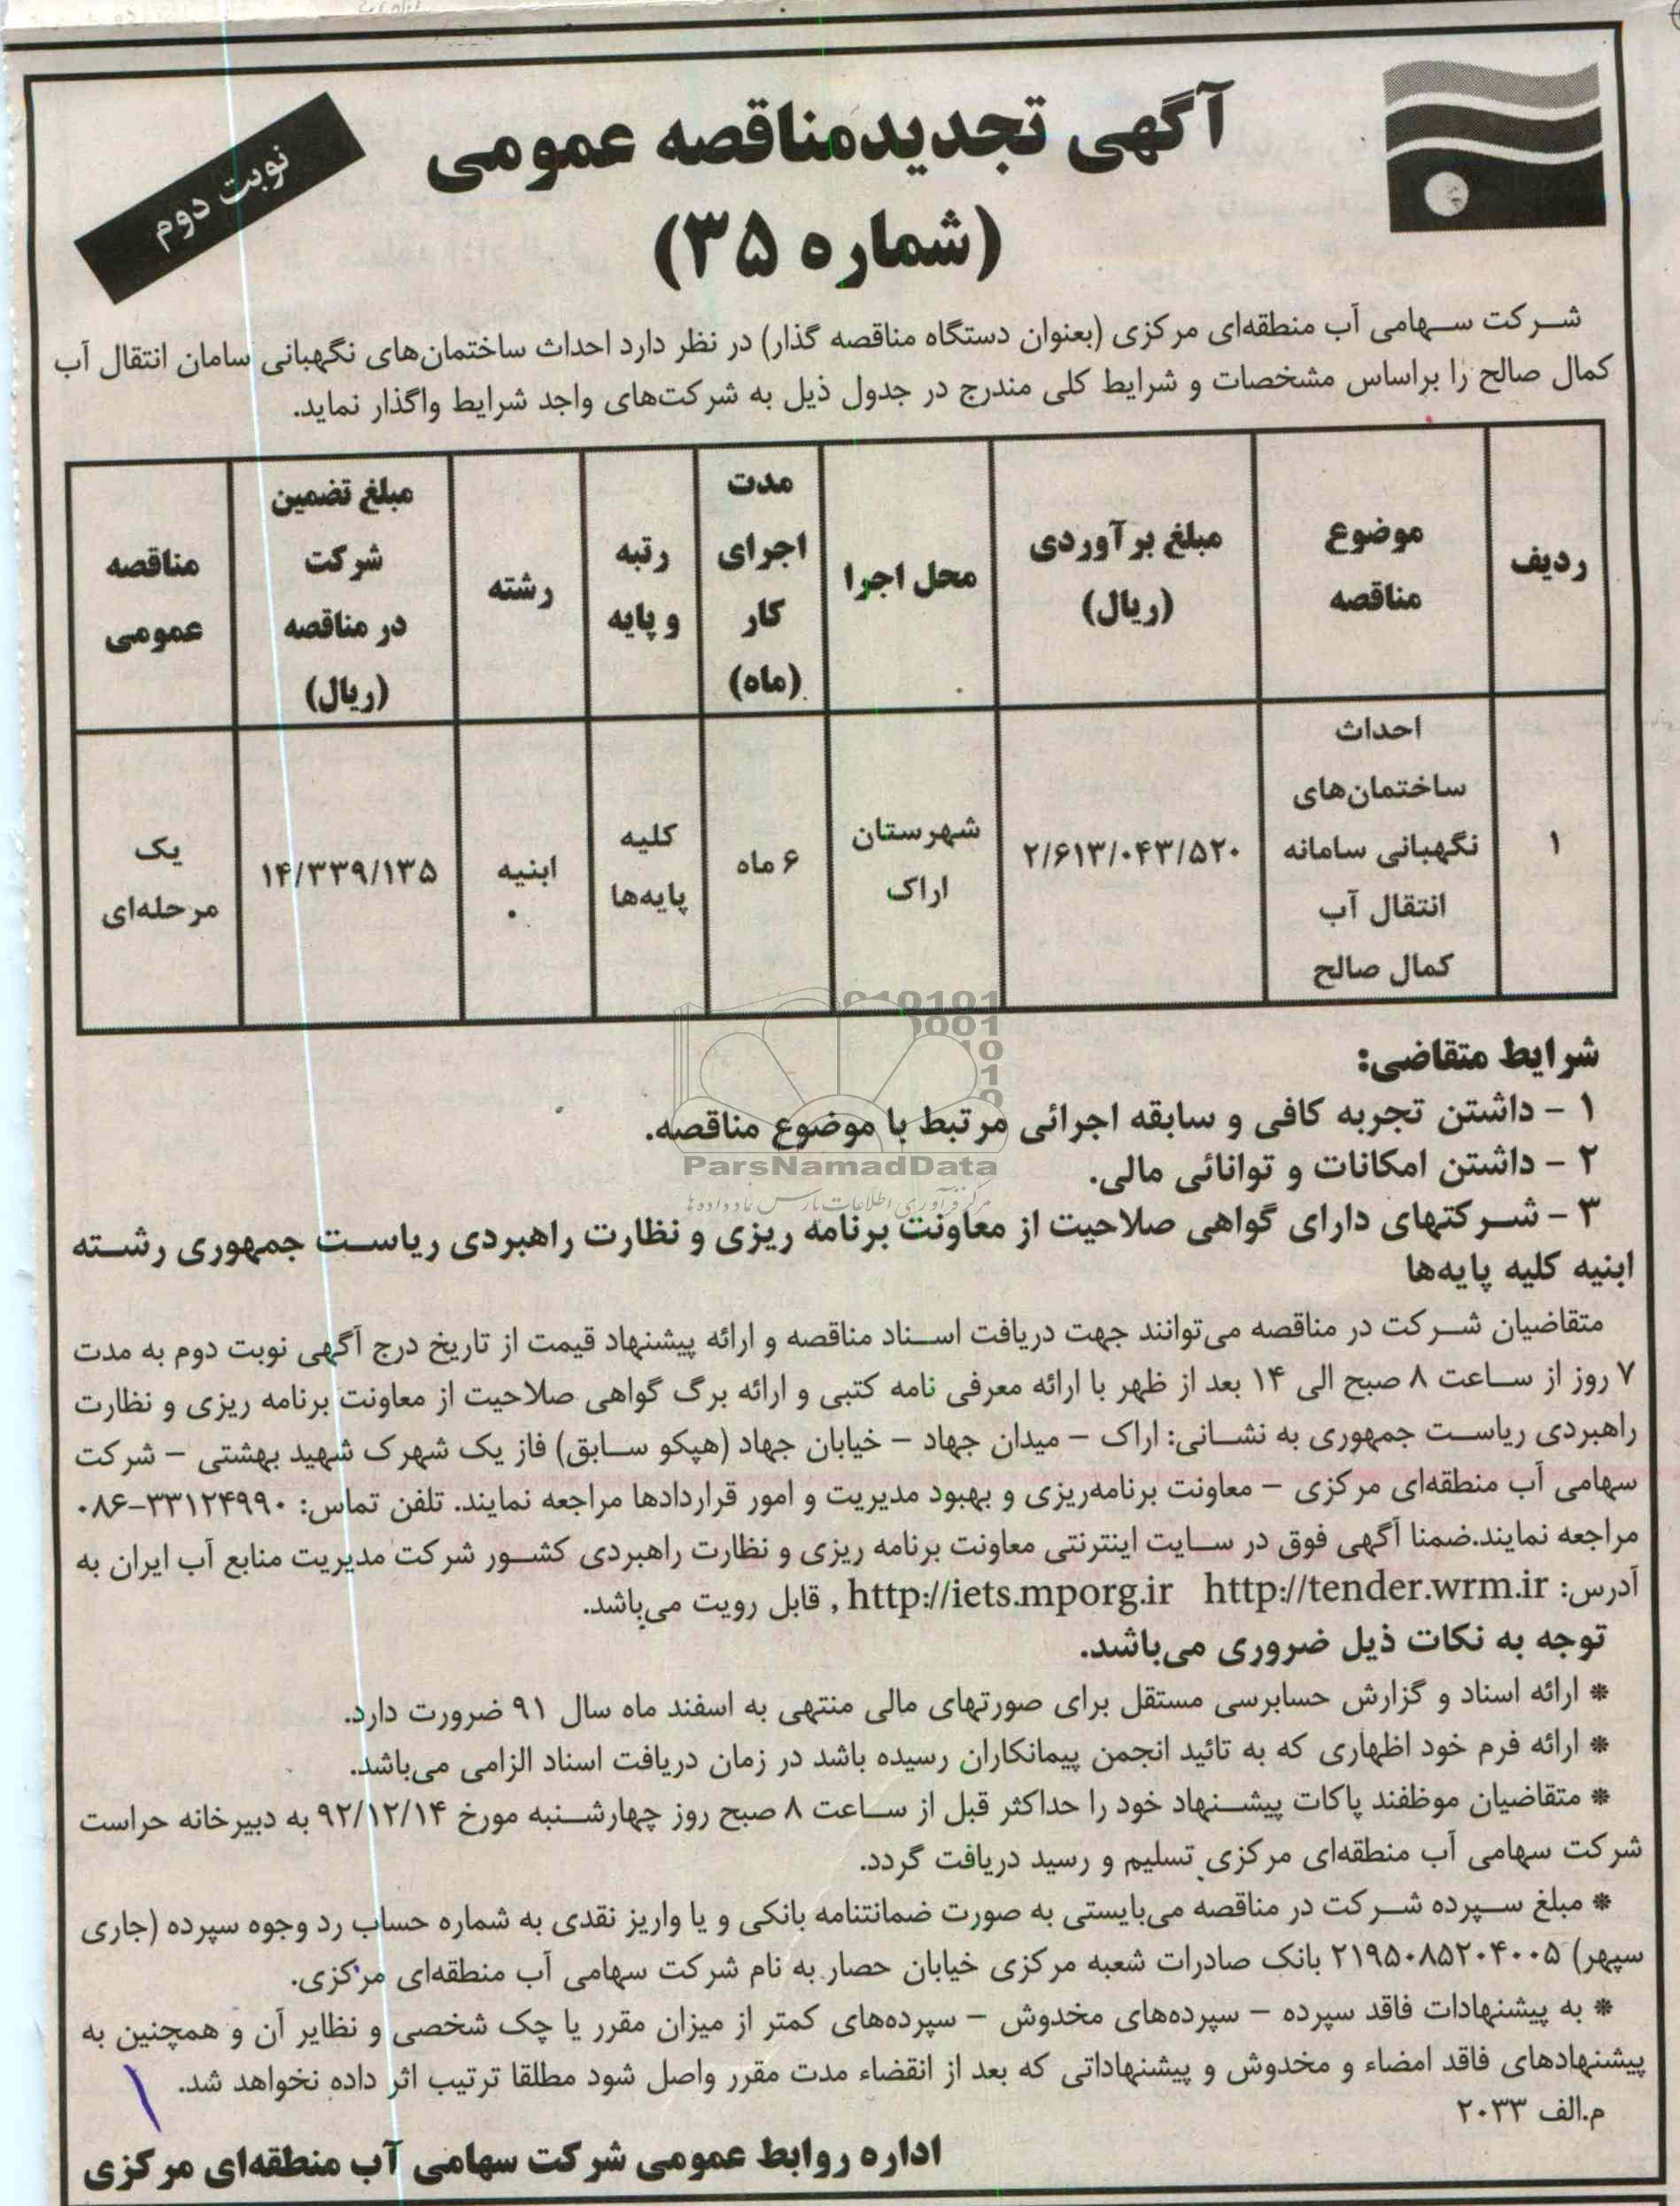 آگهی تجدیدمناقصه عمومی
(شماره ۳۵)
نوبت دوم
شرکت سهامی آب منطقه‌ای مرکزی (بعنوان دستگاه مناقصه گذار) در نظر دارد احداث ساختمان‌های نگهبانی سامان انتقال آب
کمال صالح را براساس مشخصات و شرایط کلی مندرج در جدول ذیل به شرکت‌های واجد شرایط واگذار نماید.
ردیف
موضوع
مناقصه
مبلغ برآوردی
(ریال)
محل اجرا
مدت
اجرای
کار
(ماه)
رتبه
و پایه
رشته
مبلغ تضمین
شرکت
در مناقصه
(ریال)
مناقصه
عمومی
۱
احداث
ساختمان‌های
نگهبانی سامانه
انتقال آب
کمال صالح
۲/۶۱۳/۰۴۳/۵۲۰
شهرستان
اراک
۶ ماه
کلیه
پایه‌ها
ابنیه
۱۴/۳۳۹/۱۳۵
یک
مرحله‌ای
شرایط متقاضی:
۱ - داشتن تجربه کافی و سابقه اجرائی مرتبط با موضوع مناقصه.
۲ - داشتن امکانات و توانائی مالی.
ParsNamadData
مرکز فرآوری اطلاعات پارس نماد داده ها
۳ - شرکتهای دارای گواهی صلاحیت از معاونت برنامه ریزی و نظارت راهبردی ریاست جمهوری رشته
ابنیه کلیه پایه‌ها
متقاضیان شرکت در مناقصه می‌توانند جهت دریافت اسناد مناقصه و ارائه پیشنهاد قیمت از تاریخ درج آگهی نوبت دوم به مدت
۷ روز از ساعت ۸ صبح الی ۱۴ بعد از ظهر با ارائه معرفی نامه کتبی و ارائه برگ گواهی صلاحیت از معاونت برنامه ریزی و نظارت
راهبردی ریاست جمهوری به نشانی: اراک – میدان جهاد – خیابان جهاد (هپکو سابق) فاز یک شهرک شهید بهشتی – شرکت
سهامی آب منطقه‌ای مرکزی – معاونت برنامه‌ریزی و بهبود مدیریت و امور قراردادها مراجعه نمایند. تلفن تماس: ۳۳۱۲۴۹۹۰-۰۸۶
مراجعه نمایند.ضمنا آگهی فوق در سایت اینترنتی معاونت برنامه ریزی و نظارت راهبردی کشور شرکت مدیریت منابع آب ایران به
آدرس: http://tender.wrm.ir http://iets.mporg.ir , قابل رویت می‌باشد.
توجه به نکات ذیل ضروری می‌باشد.
* ارائه اسناد و گزارش حسابرسی مستقل برای صورتهای مالی منتهی به اسفند ماه سال ۹۱ ضرورت دارد.
* ارائه فرم خود اظهاری که به تائید انجمن پیمانکاران رسیده باشد در زمان دریافت اسناد الزامی می‌باشد.
* متقاضیان موظفند پاکات پیشنهاد خود را حداکثر قبل از ساعت ۸ صبح روز چهارشنبه مورخ ۹۲/۱۲/۱۴ به دبیرخانه حراست
شرکت سهامی آب منطقه‌ای مرکزی تسلیم و رسید دریافت گردد.
* مبلغ سپرده شرکت در مناقصه می‌بایستی به صورت ضمانتنامه بانکی و یا واریز نقدی به شماره حساب رد وجوه سپرده (جاری
سپهر) ۲۱۹۵۰۸۵۲۰۴۰۰۵ بانک صادرات شعبه مرکزی خیابان حصار به نام شرکت سهامی آب منطقه‌ای مرکزی.
* به پیشنهادات فاقد سپرده – سپرده‌های مخدوش – سپرده‌های کمتر از میزان مقرر یا چک شخصی و نظایر آن و همچنین به
پیشنهادهای فاقد امضاء و مخدوش و پیشنهاداتی که بعد از انقضاء مدت مقرر واصل شود مطلقا ترتیب اثر داده نخواهد شد.
م.الف ۲۰۳۳
اداره روابط عمومی شرکت سهامی آب منطقه‌ای مرکزی